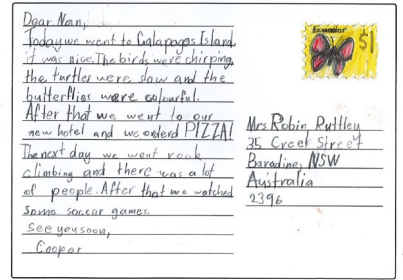 Dear Nan,
Today we went to Galapagos Island.
it was nice. The birds were chirping,
the turtler were slow and the
butterflies were colourful.
After that we went to our
new hotel and we orderd PIZZA!
The next day we went rock
climbing and there was a lot
of people. After that we watched
some soccer games.
See you soon,
Cooper
Ecuador
$1
Mrs Robin Ruttley
35 Creek Street
Baradine, NSW
Australia
2396